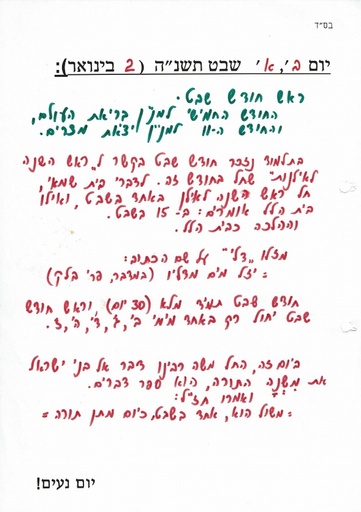 בס״ד
יום ב', א' שבט תשנ״ה (2 בינואר):
ראש חודש שבט.
החודש החמישי למנין בריאת העולם,
והחודש ה-11 למנין יציאת מצרים.
בתלמוד נזכר חודש שבט בקשר ל״ראש השנה
לאילנות״ שחל בחודש זה. לדברי בית שמאי,
חל ראש השנה לאילן באחד בשבט, ואילו
בית הלל אומרים: ב-15 בשבט.
וההלכה כבית הלל.
מזלו ״דלי״ על שם הכתוב:
= יזל מים מדליו (במדבר, פר' בלק)
חודש שבט תמיד מלא (30 יום) וראש חודש
שבט יחול רק באחד מימי ב', ג', ד', ה', ז.
ביום זה, החל משה רבינו דבר אל בני ישראל
את מִשְנֶה התורה, הוא ספר דברים.
ואמרו חז״ל:
= משול הוא, אחד בשבט, כיום מתן תורה =
יום נעים!